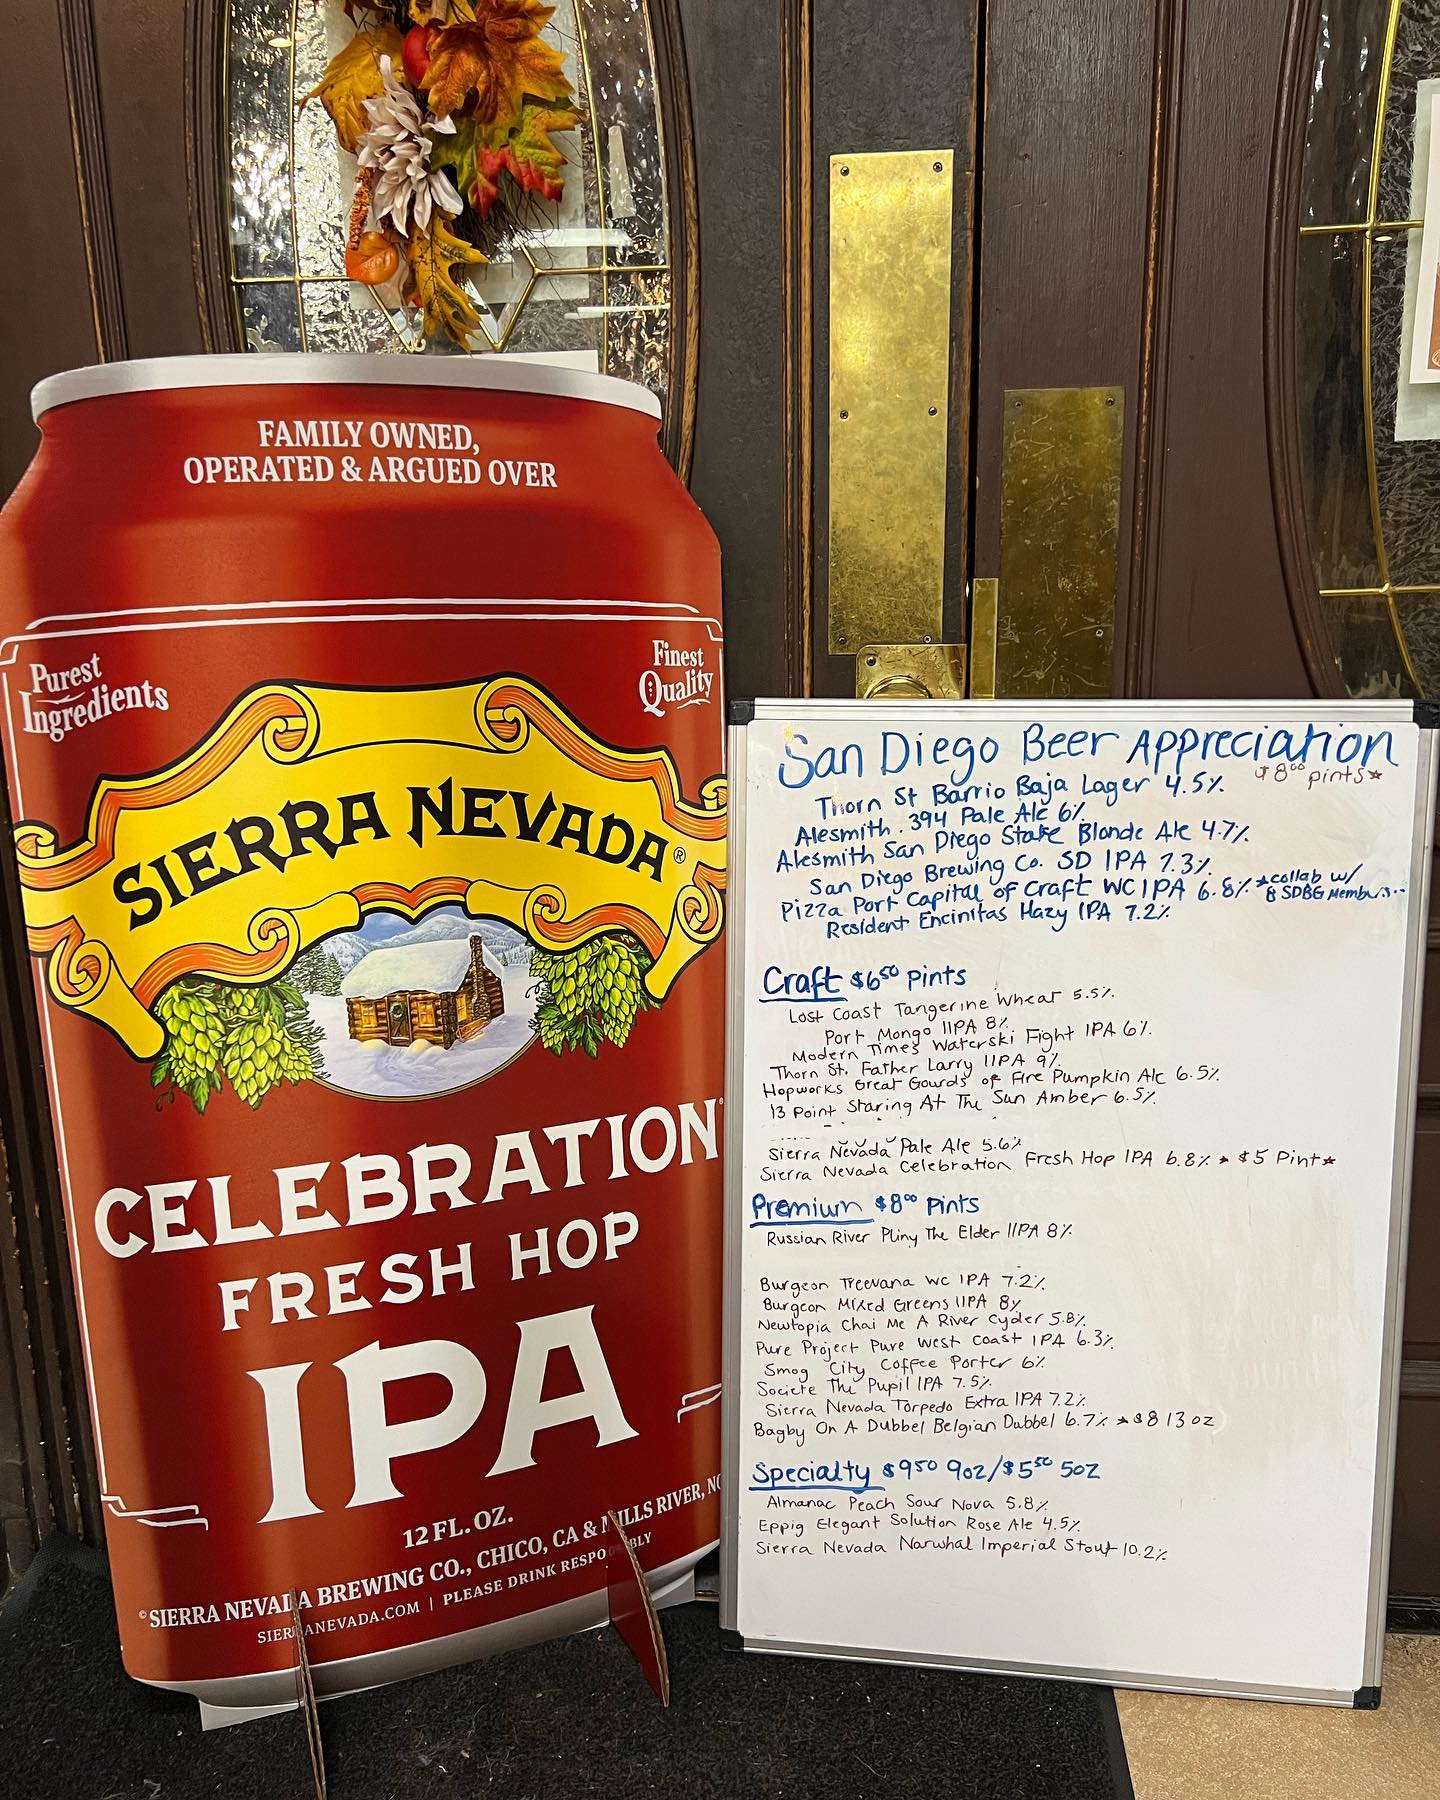 FAMILY OWNED,
OPERATED & ARGUED OVER
Purest
Ingredients
Finest
Quality
SIERRA NEVADA®
CELEBRATION®
FRESH HOP
IPA
12 FL. OZ.
©SIERRA NEVADA BREWING CO., CHICO, CA & MILLS RIVER, NC
SIERRANEVADA.COM | PLEASE DRINK RESPONSIBLY
San Diego Beer Appreciation
$8⁰⁰ pints*
Thorn St Barrio Baja Lager 4.5%
Alesmith .394 Pale Ale 6%
Alesmith San Diego State Blonde Ale 4.7%
San Diego Brewing Co. SD IPA 7.3%
Pizza Port Capital of Craft WC IPA 6.8% *collab w/
8 SDBG Members..
Resident Encinitas Hazy IPA 7.2%
Craft $6⁵⁰ pints
Lost Coast Tangerine Wheat 5.5%
Port Mongo IIPA 8%
Modern Times Waterski Fight IPA 6%
Thorn St. Father Larry IIPA 9%
Hopworks Great Gourds of Fire Pumpkin Ale 6.5%
13 Point Staring At The Sun Amber 6.5%
Sierra Nevada Pale Ale 5.6%
Sierra Nevada Celebration Fresh Hop IPA 6.8% * $5 Pint*
Premium $8⁰⁰ pints
Russian River Pliny The Elder IIPA 8%
Burgeon Treevana WC IPA 7.2%
Burgeon Mixed Greens IIPA 8%
Newtopia Chai Me A River Cyder 5.8%
Pure Project Pure West Coast IPA 6.3%
Smog City Coffee Porter 6%
Societe The Pupil IPA 7.5%
Sierra Nevada Torpedo Extra IPA 7.2%
Bagby On A Dubbel Belgian Dubbel 6.7% *$8 13oz
Specialty $9⁵⁰ 9oz/$5⁵⁰ 5oz
Almanac Peach Sour Nova 5.8%
Eppig Elegant Solution Rose Ale 4.5%
Sierra Nevada Narwhal Imperial Stout 10.2%